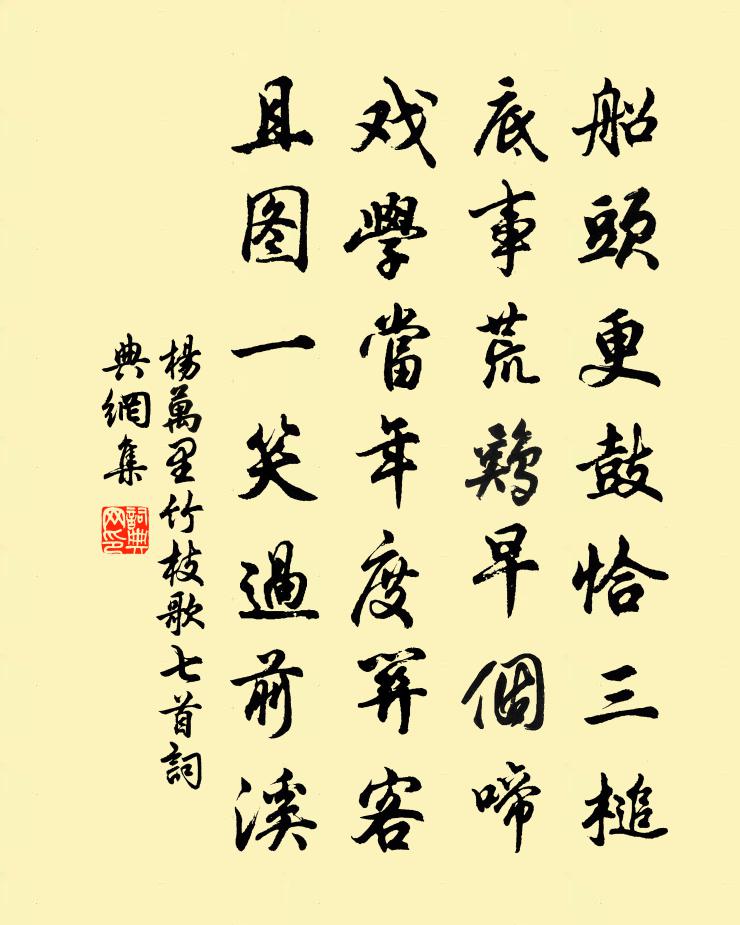 船頭更鼓恰三槌
底事荒鷄早個啼
戏學當年度関客
且图一笑過前溪
楊萬里竹枝歌七首詞
典網集
詞典
网印